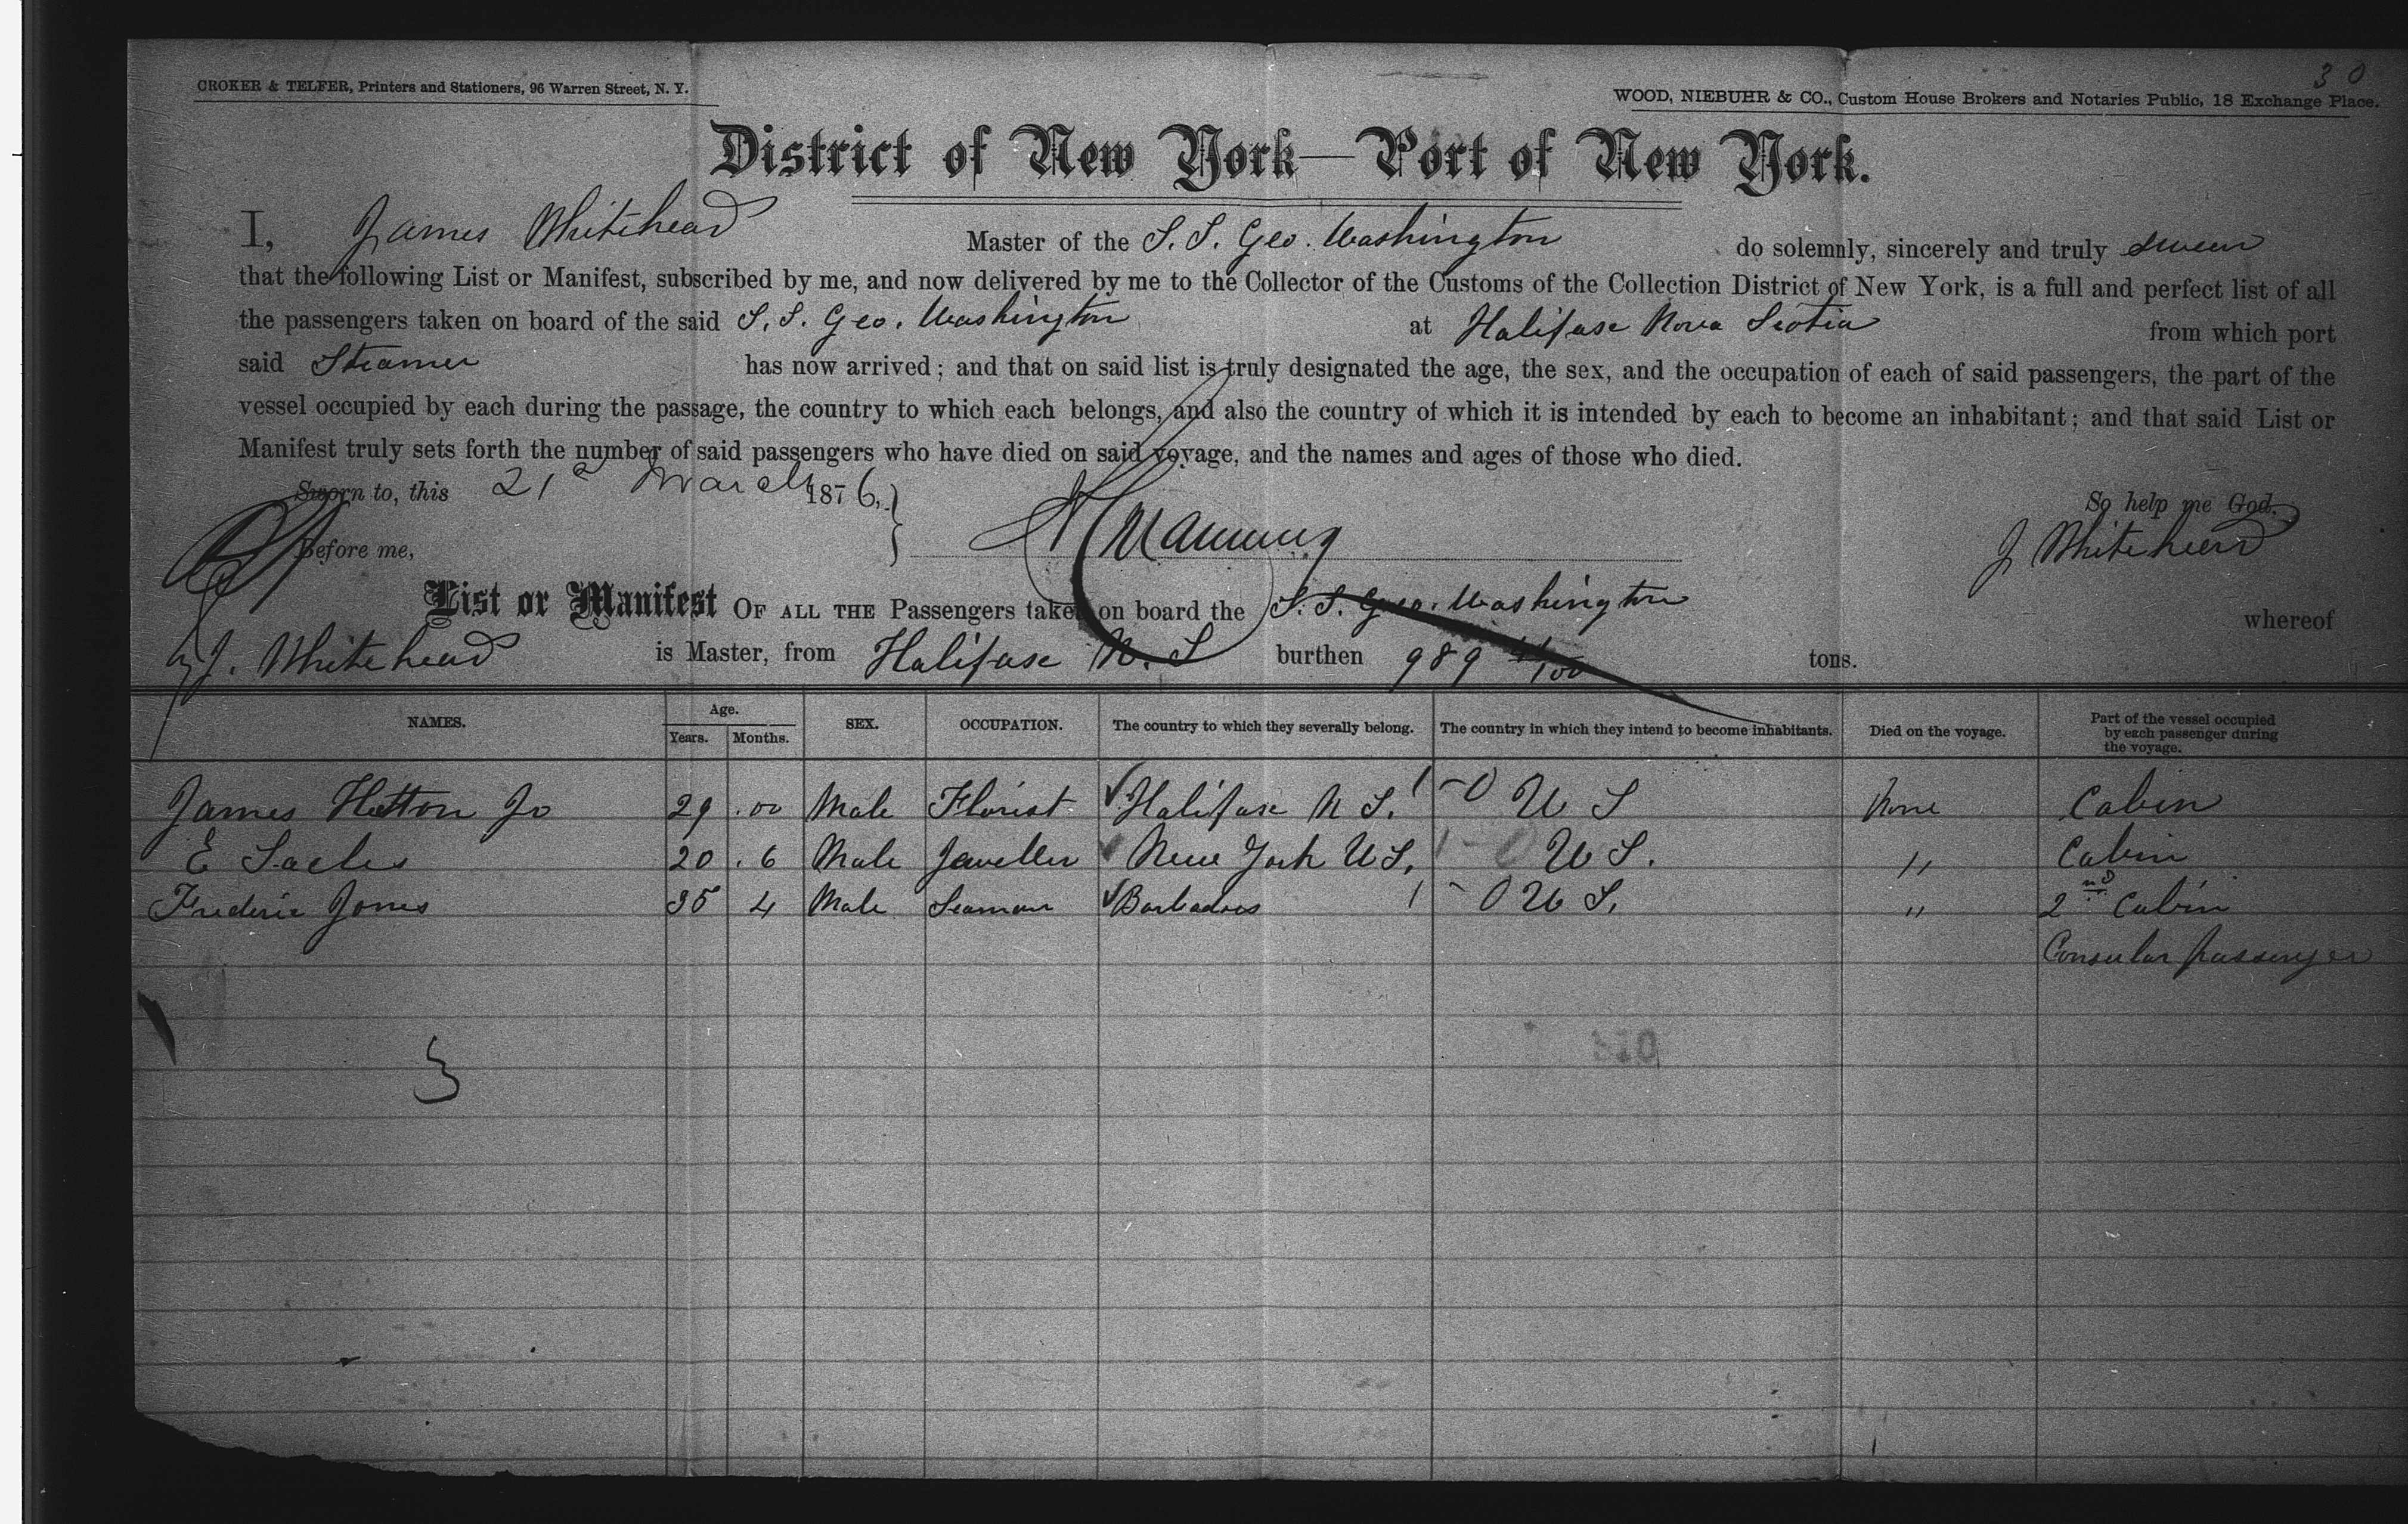 30
CROKER & TELFER, Printers and Stationers, 96 Warren Street, N. Y.
WOOD, NIEBUHR & CO., Custom House Brokers and Notaries Public, 18 Exchange Place.
District of New York—Port of New York.
I, James Whitehead Master of the S. S. Geo. Washington do solemnly, sincerely and truly swear
that the following List or Manifest, subscribed by me, and now delivered by me to the Collector of the Customs of the Collection District of New York, is a full and perfect list of all
the passengers taken on board of the said S. S. Geo. Washington at Halifax Nova Scotia from which port
said Steamer has now arrived; and that on said list is truly designated the age, the sex, and the occupation of each of said passengers, the part of the
vessel occupied by each during the passage, the country to which each belongs, and also the country of which it is intended by each to become an inhabitant; and that said List or
Manifest truly sets forth the number of said passengers who have died on said voyage, and the names and ages of those who died.
Sworn to, this 21st March 1876, So help me God.
Before me, J Whitehead
List or Manifest OF ALL THE Passengers taken on board the S. S. Geo. Washington whereof
J. Whitehead is Master, from Halifax N. S burthen 989 tons.
NAMES. Age. Years. Months. SEX. OCCUPATION. The country to which they severally belong. The country in which they intend to become inhabitants. Died on the voyage. Part of the vessel occupied by each passenger during the voyage.
James Hutton Jr 29 .00 Male Florist Halifax N S. U S None Cabin
E Sachs 20 .6 Male Jeweller New York U S. U S. " Cabin
Frederic Jones 35 4 Male Seaman Barbadoes U S. " 2nd Cabin
Consular passenger
3